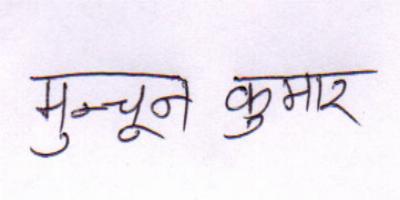 मुन्चून कुमार